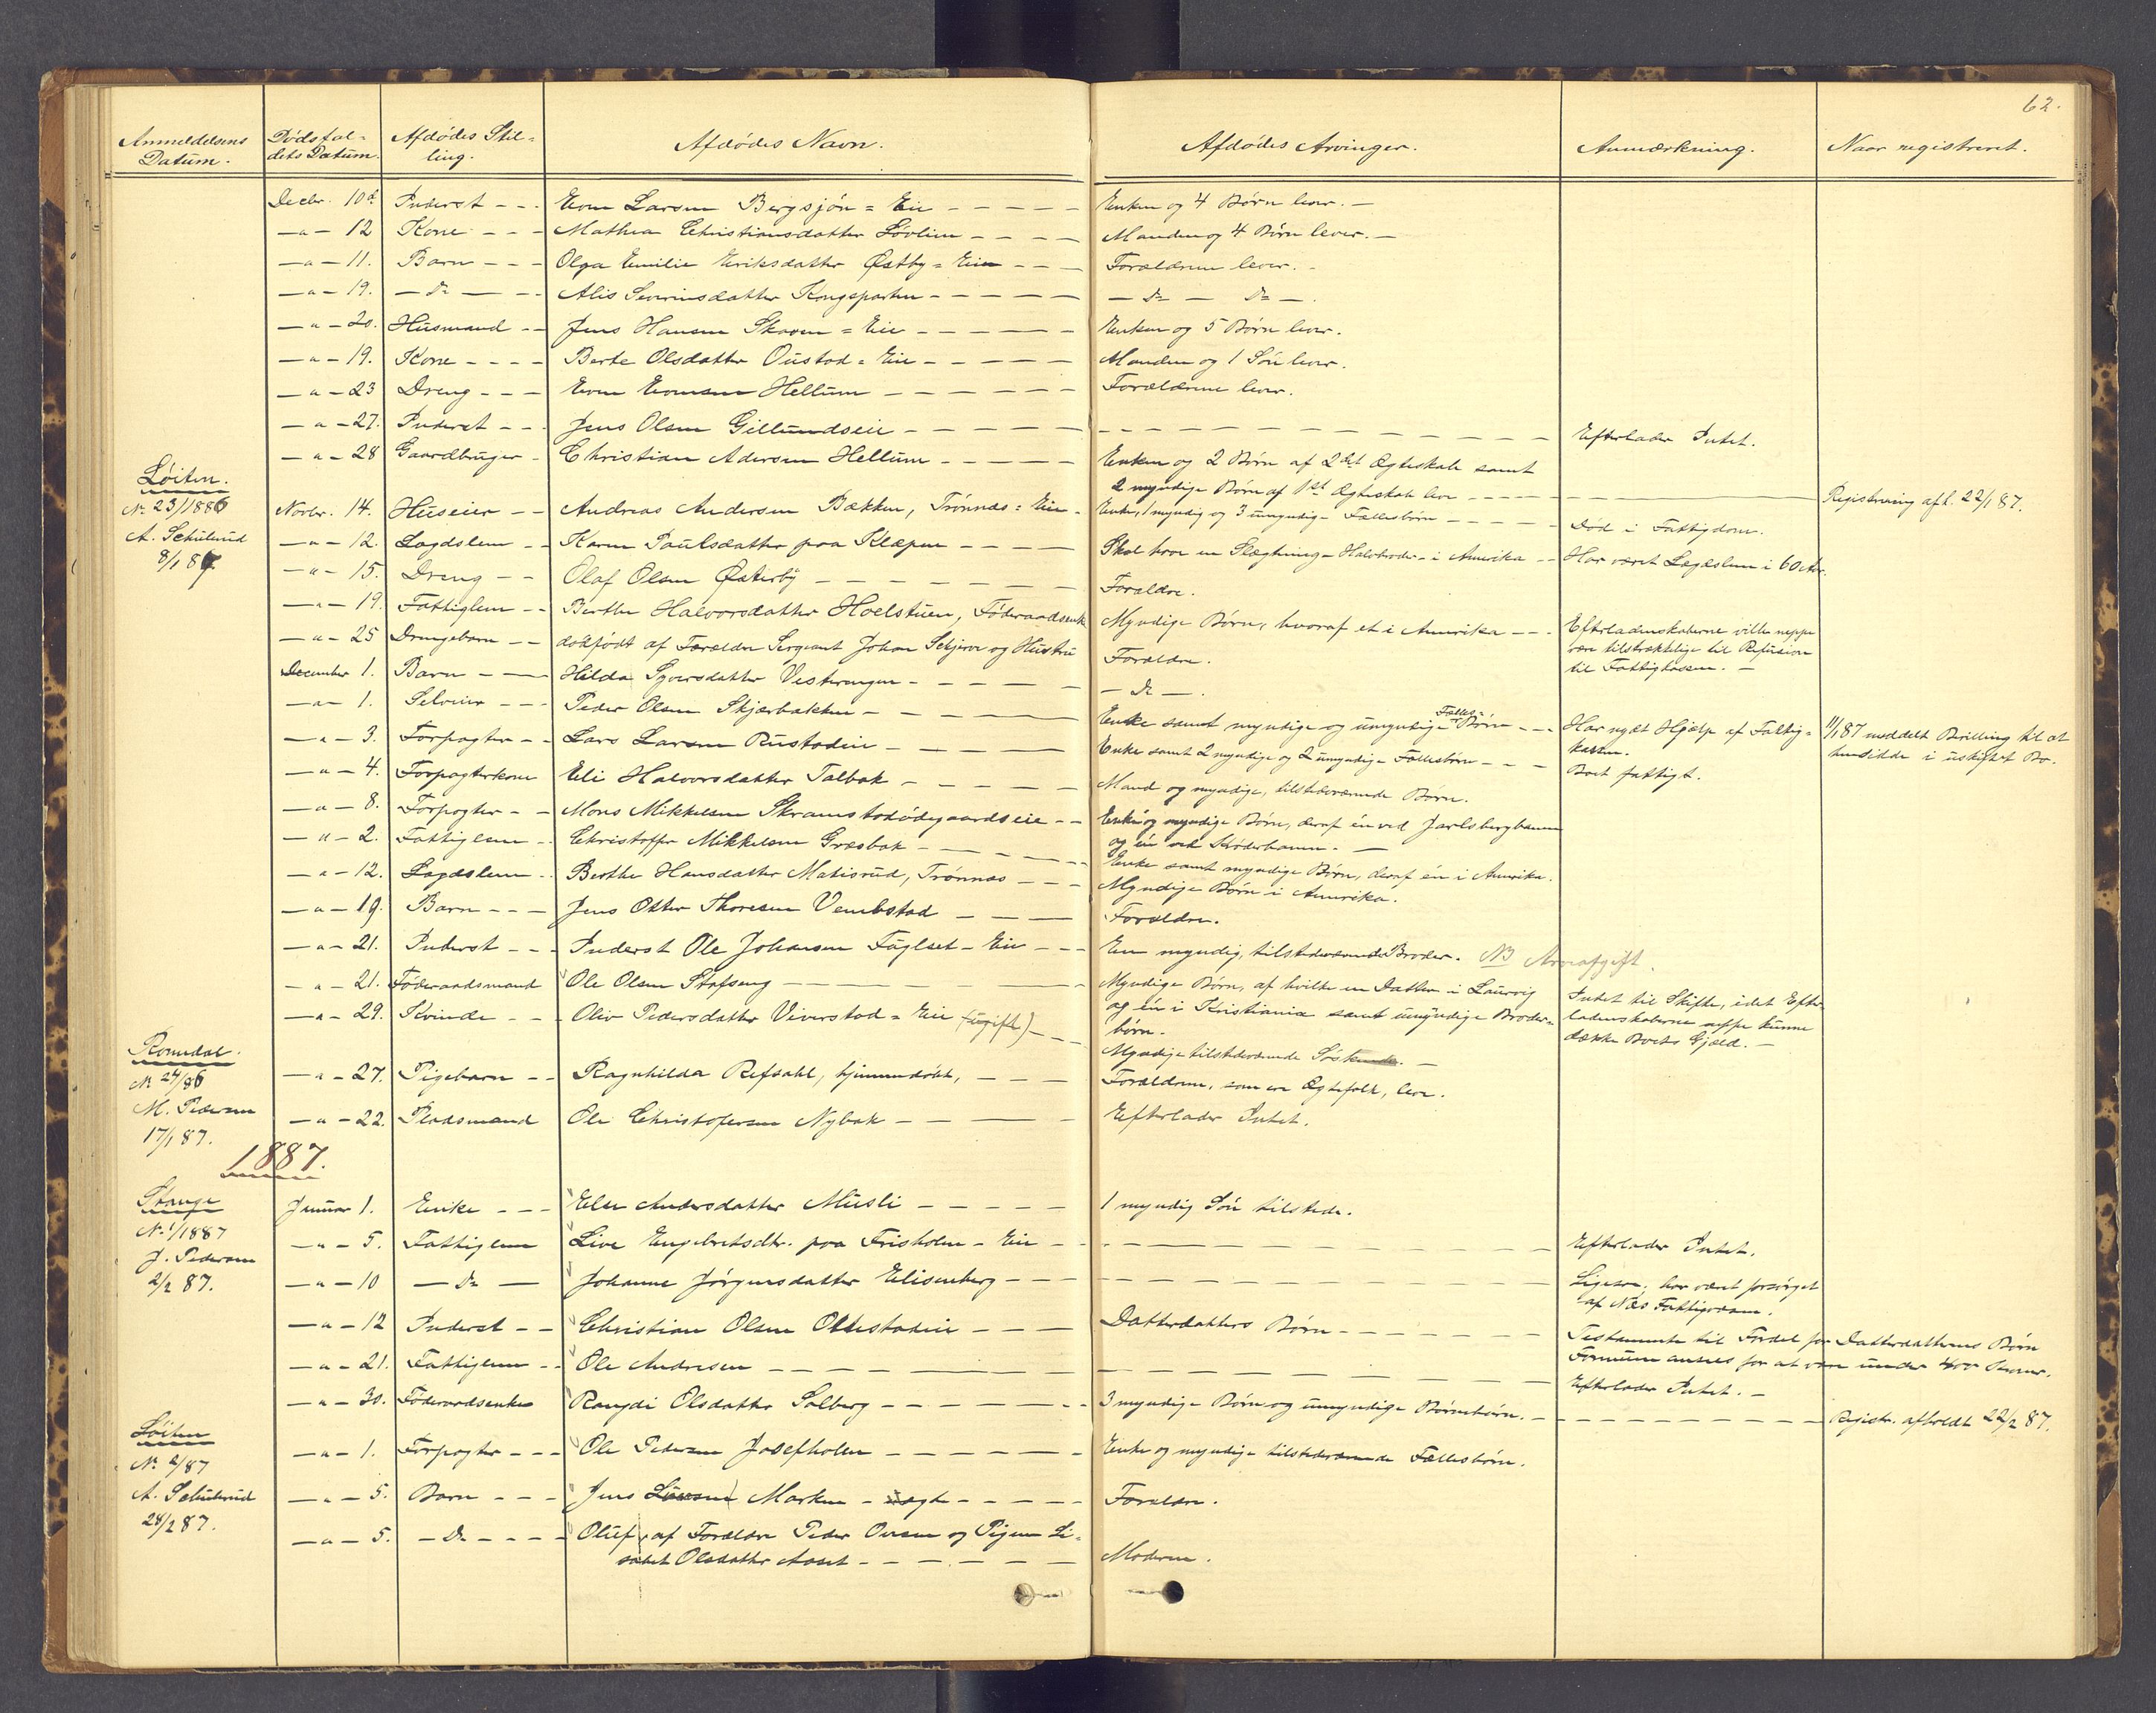 62.
Anmeldelsens Datum.
Dødsfaldets Datum.
Afdødes Stilling.
Afdødes Navn.
Afdødes Arvinger.
Anmærkning.
Naar registreret.
Decbr. 10de Inderst - - - Even Larsen Bergsjøn = Eie - - - - - Enken og 4 Børn lever. -
- " - 12 Kone - - - Mathea Christiansdatter Løvlien - - - - Manden og 4 Børn lever. -
- " - 11. Barn - - - Olga Emilie Eriksdatter Østby = Eie - - - Forældrene lever. -
- " - 19. - Do - - - Alis Severinsdatter Kongsparten - - - - - - Do - Do - .
- " - 20. Husmand - - Jens Hansen Skaven = Eie - - - - - Enken og 5 Børn lever.
- " - 19. Kone - - - - Berte Olsdatter Oustad = Eie - - - - - Manden og 1 Søn lever.
- " - 23 Dreng - - - Even Evensen Hellum - - - - - - Forældrene lever.
- " - 27. Inderst - - - Jens Olsen Gillundseie - - - - - - - - - - - Efterlader Intet.
- " - 28 Gaardbruger - Christian Adersen Hellum - - - - - Enken og 2 Børn af 2det Ægteskab samt
2 myndige Børn af 1st Ægteskab lever - - - - Registrering afh. 22/1 87.
Løiten.
No 23/1886
A. Schulrud
8/1 87
Novbr. 14. Huseier - - Andreas Andersen Bækken, Trønnæs = Eie - Enke, 1 myndig og 3 umyndige Fællesbørn - - - - - Død i Fattigdom.
- " - 12. Lægdslem - - Karen Paulsdatter paa Klæpen - - - - Skal have en Slægtning - Halvbroder - i Amerika - - Har været Lægdslem i 60 Aar.
- " - 15. Dreng - - Olaf Olsen Østerby - - - - - - - Forældre.
- " - 19. Fattiglem - - Berthe Halvorsdatter Hoelstuen, Føderaadsenke Myndige Børn, hvoraf et i Amerika - - - Efterladenskaberne vilde neppe
være tilstrækkelige til Refusion
til Fattigkassen. -
- " - 25 Drengebarn - - dødfødt af Forældre Sergeant Johan Schjerve og Hustru Forældre.
December 1. Barn - - - Hilda Syversdatter Vesterengen - - - - - - - Do - .
- " - 1. Selveier - - - Peder Olsen Skjærbækken - - - - - - Enke samt myndige og umyndige Fælles= Børn - - - Har nydt Hjælp af Fattig=
kassen.
11/1 87 meddelt Bevilling til at
hensidde i uskiftet Bo.
- " - 3. Forpagter - - Lars Larsen Rustadeie - - - - - Enke samt 2 myndige og 2 umyndige Fællesbørn - - - Boet fattigt.
- " - 4. Forpagterkone Eli Halvorsdatter Talbak - - - - - Mand og myndige, tilstedeværende Børn.
- " - 8. Forpagter - - Mons Mikkelsen Skramstadødegaardseie - - Enke og myndige Børn, deraf én ved Jarlsbergbanen
og én ved Krøderbanen. -
- " - 2. Fattiglem - - Christoffer Mikkelsen Græsbak - - - - - - Enke samt myndige Børn, deraf én i Amerika.
- " - 12. Lægdslem - - Berthe Hansdatter Matisrud, Trønnæs - - - Myndige Børn i Amerika.
- " - 19. Barn - - - Jens Otter Thoresen Vembstad - - - - Forældre.
- " - 21. Inderst - - - Inderst Ole Johansen Fuglset - Eie - - - En myndig, tilstedeværende Broder. NB Arveafgift.
- " - 21. Føderaadsmand Ole Olsen Stafseng - - - - - - - Myndige Børn, af hvilke en Datter i Laurvig
og én i Kristiania samt umyndige Broder=
børn. -
Intet til Skifte, idet Efter=
ladenskaberne neppe kunne
dække Boets Gjæld. -
- " - 29. Kvinde - - - Oliv Pedersdatter Viverstad = Eie (ugift) - - Myndige tilstedeværende Søskende. -
Romedal.
No 24/86
M. Pedersen
17/1 87.
- " - 27. Pigebarn - - Ragnhilda Refsahl, hjemmedøbt, - - - Forældrene, som ere Ægtefolk, lever.
- " - 22. Pladsmand Ole Christofersen Nybak - - - - Efterlader Intet.
1887.
Stange
No 1/1887
J. Pedersen
2/2 87.
Januar 1. Enke - - - Else Andersdatter Musli - - - - - 1 myndig Søn tilstede.
- " - 5. Fattiglem Live Engebretsdtr. paa Frisholm - Eie - - - - - - - - - Efterlader Intet.
- " - 10 - Do - Johanne Jørgensdatter Elisenberg - - - - - - - - - Ligesaa; har været forsørget
af Næs Fattigvæsen.
- " - 12 Inderst - - Christian Olsen Ottestadeie - - - - Datterdatters Børn - - - - - - Testamente til Fordel for Datterdatterens Børn
Formuen ansees for at være under 400 Kroner.
- " - 21. Fattiglem - - Ole Andresen - - - - - - - - - - - - Efterlader Intet. -
- " - 30. Føderaadsenke Rangdi Olsdatter Solberg - - - - - - 3 myndige Børn og umyndige Børnebørn. - - - - - - Registr. afholdt 22/2 87.
Løiten
No 2/87
A. Schulrud
24/2 87.
- " - 1. Forpagter - - - Ole Pedersen Josefholen - - - - - - Enke og myndige tilstedeværende Fællesbørn.
- " - 5. Barn - - - Jens Marken - uægte - - - - - Forældre.
- " - 5. - Do - - - - Oluf, af Forældre Peder Oversen og Pigen Li=
sabet Olsdatter Aaset - - - - - - - Moderen.